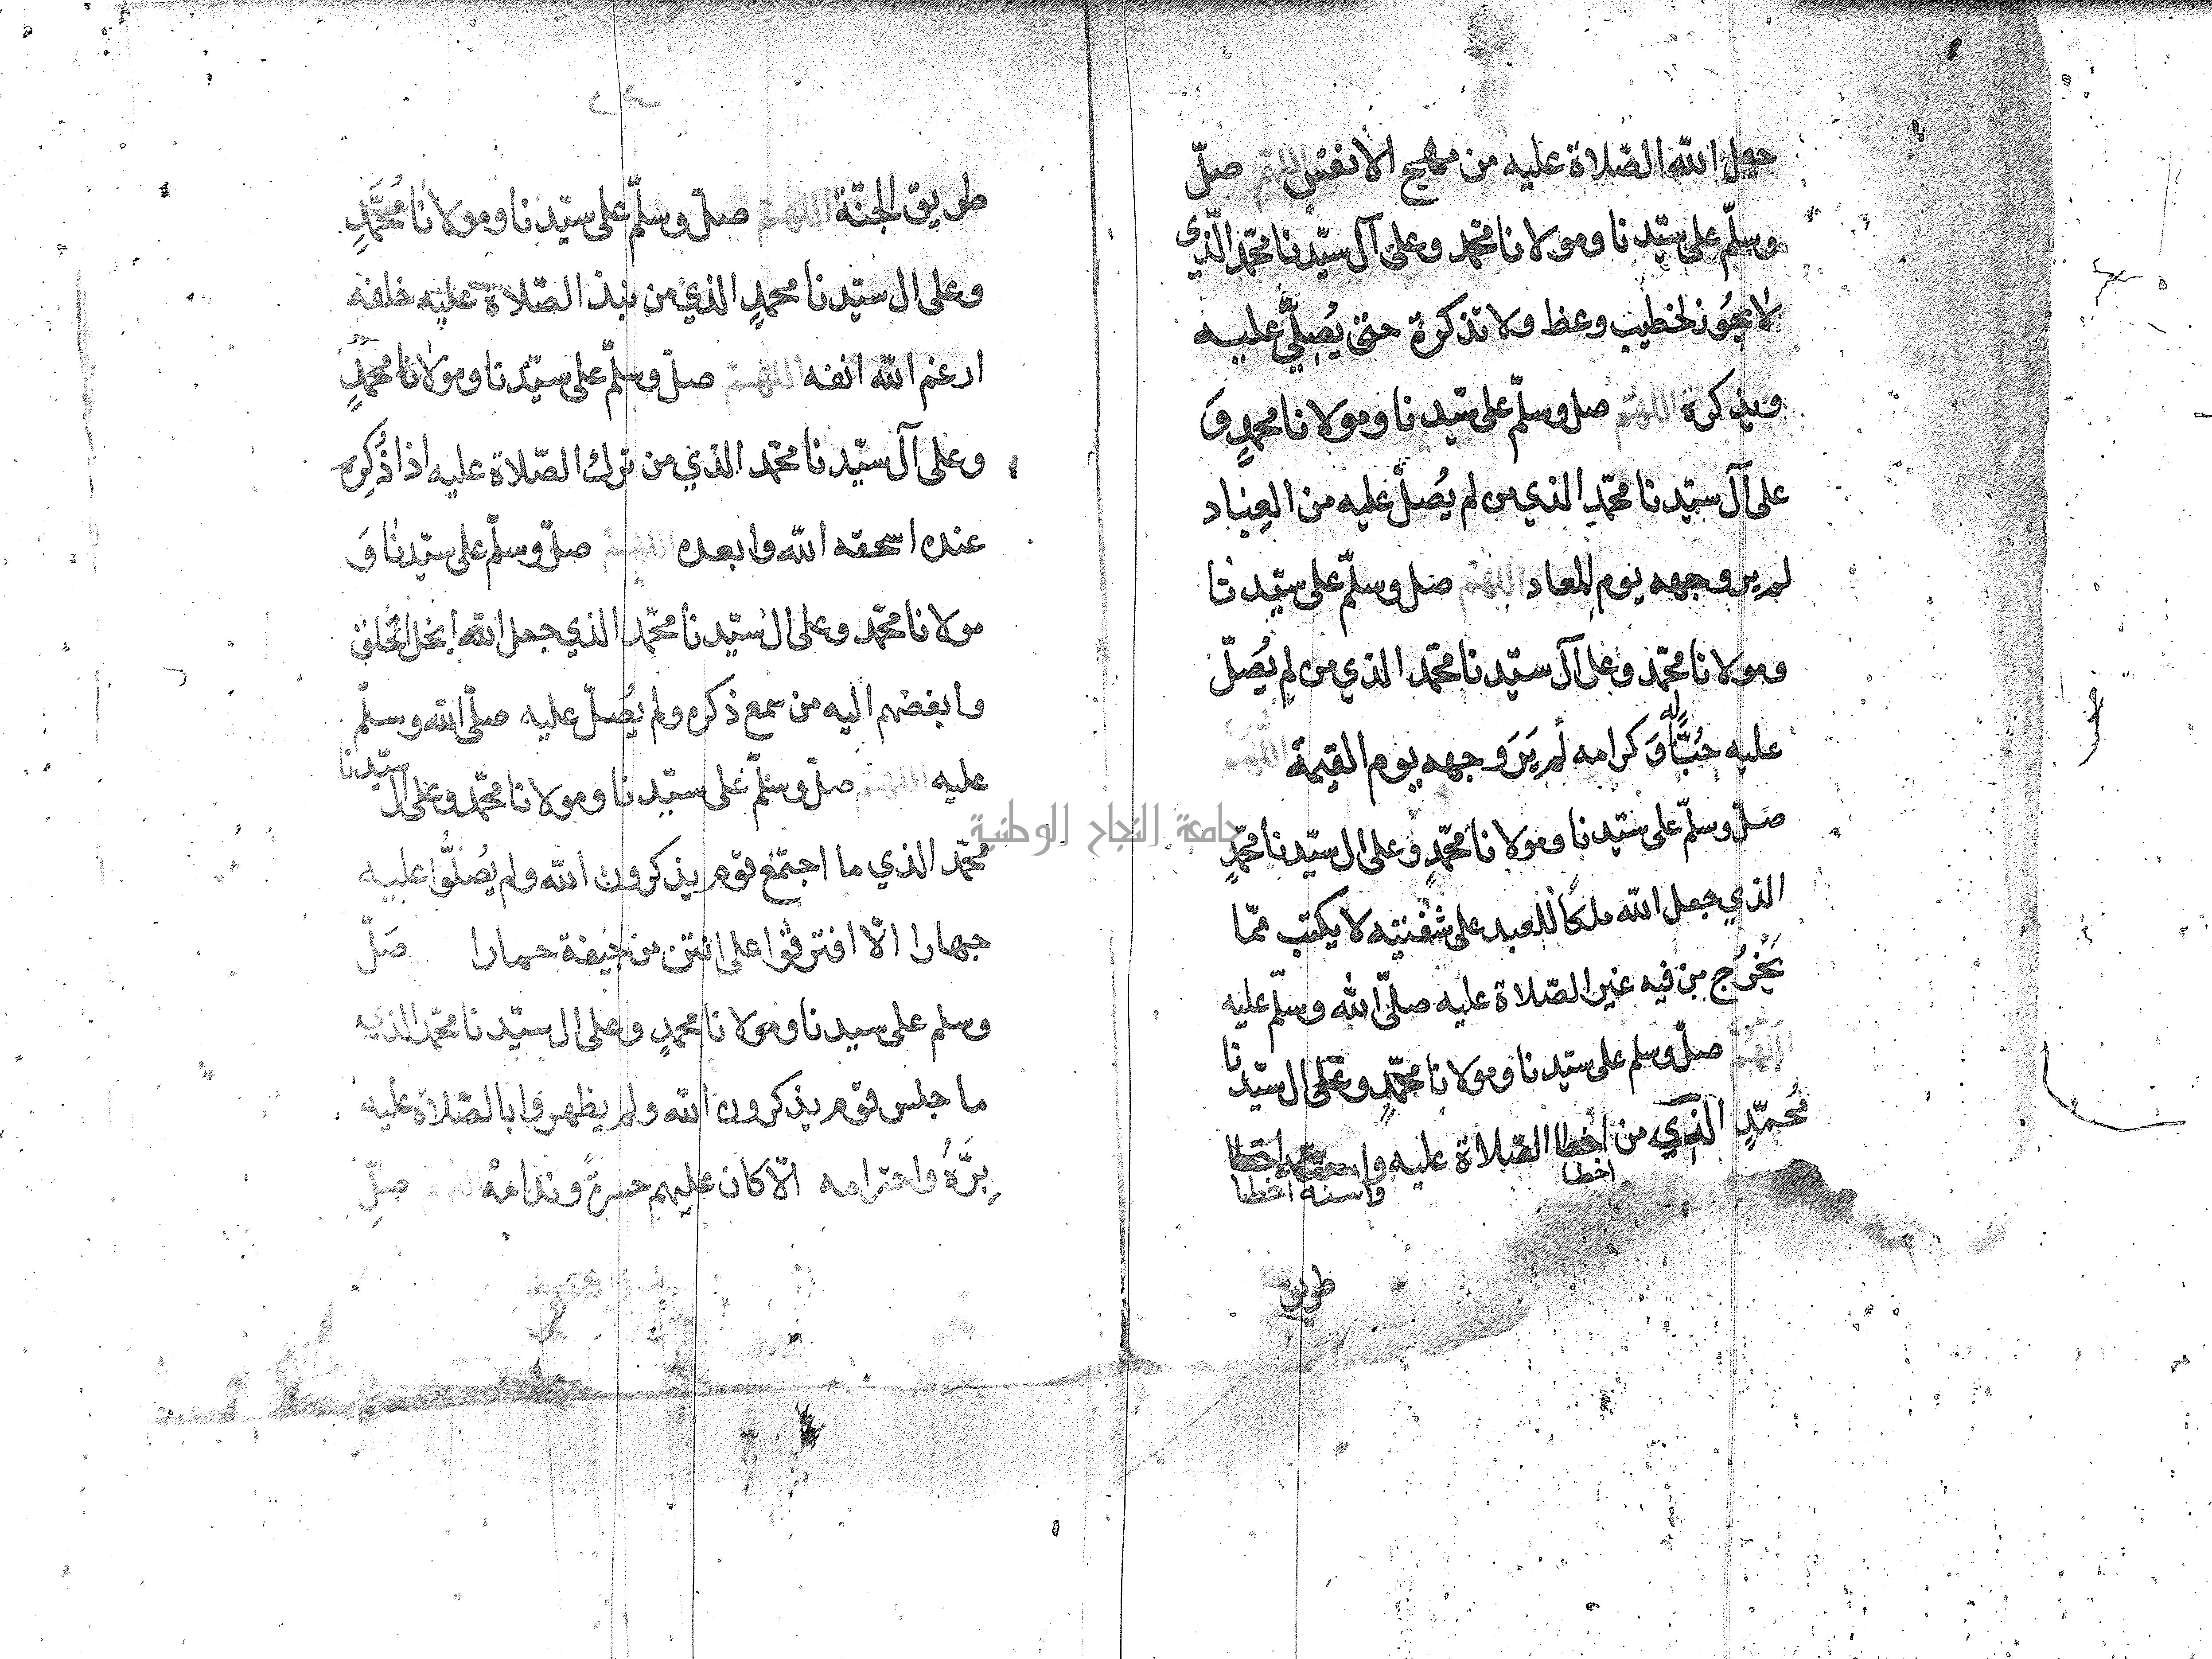 جعل الله الصّلاة عليه من مهج الانفس اللهم صلّ
وسلّم على سيّدنا ومولانا محمّد وعلى آل سيّدنا محمّد الّذي
لا يجُوز لخطيب وعظ ولا تذكرة حتى يُصلّيَ عليه
ويذكره اللهم صل وسلّم على سيّدنا ومولانا محمدٍ وَ
على آل سيّدنا محمّدٍ الذي من لم يُصلّ عليه من العِباد
لم ير وجهه يوم المعاد اللهم صل وسلّم على سيّدنا
ومولانا محمّد وعلى آل سيّدنا محمّد الذي من لم يُصلّ
عليه حُبًّا له وَكرامه لم يَرَ وجهه يوم القيمة اللهم
صلّ وسلّم على سيّدنا ومولانا محمّدٍ وعلى ال سيّدنا محمّدٍ
الذي جعل الله ملكًا للعبد على شفتيه لا يكتب ممّا
يَخْرُج من فيه غير الصّلاة عليه صلّى الله وسلّم عليه
اللهم صلّ وسلم على سيّدنا ومولانا محمّدٍ وعلى ال سيّدنا
مُحمّدٍ الذي من اخطا الصّلاة عليه
اخطا
واسنه اخطا
طريق
طريق الجنّة اللهم صلّ وسلّم على سيّدنا ومولانا مُحَمَّدٍ
وعلى ال سيّدنا محمدٍ الذي من نبذ الصّلاة عليه خلفه
ارغم الله انفه اللهم صلّ وسلّم على سيّدنا ومولانا محمّدٍ
وعلى آل سيّدنا محمّد الذي من ترك الصّلاة عليه اذا ذُكِر
عنده اسحقه الله وابعده اللهم صلّ وسلّم على سيّدنا وَ
مولانا محمّد وعلى ال سيّدنا محمّد الذي جعل الله ابخل الخلق
وابغضهم اليه من سمع ذكره ولم يُصلّ عليه صلّى الله وسلّم
عليه اللهم صلّ وسلّم على سيّدنا ومولانا محمّد وعلى ال سيّدنا
محمّد الذي ما اجتمع قوم يذكرون الله ولم يُصلُّوا عليه
جهارا الّا افترقوا على انتن من جيفة حمارا صَلّ
وسلم على سيدنا ومولانا محمدٍ وعلى ال سيّدنا محمّد الذي
ما جلس قوم يذكرون الله ولم يظهروا بالصّلاة عليه
بِرَّهُ واحترامه الّا كان عليهم حسرةً وندامهْ اللهم صلّ
جامعة النجاح الوطنية